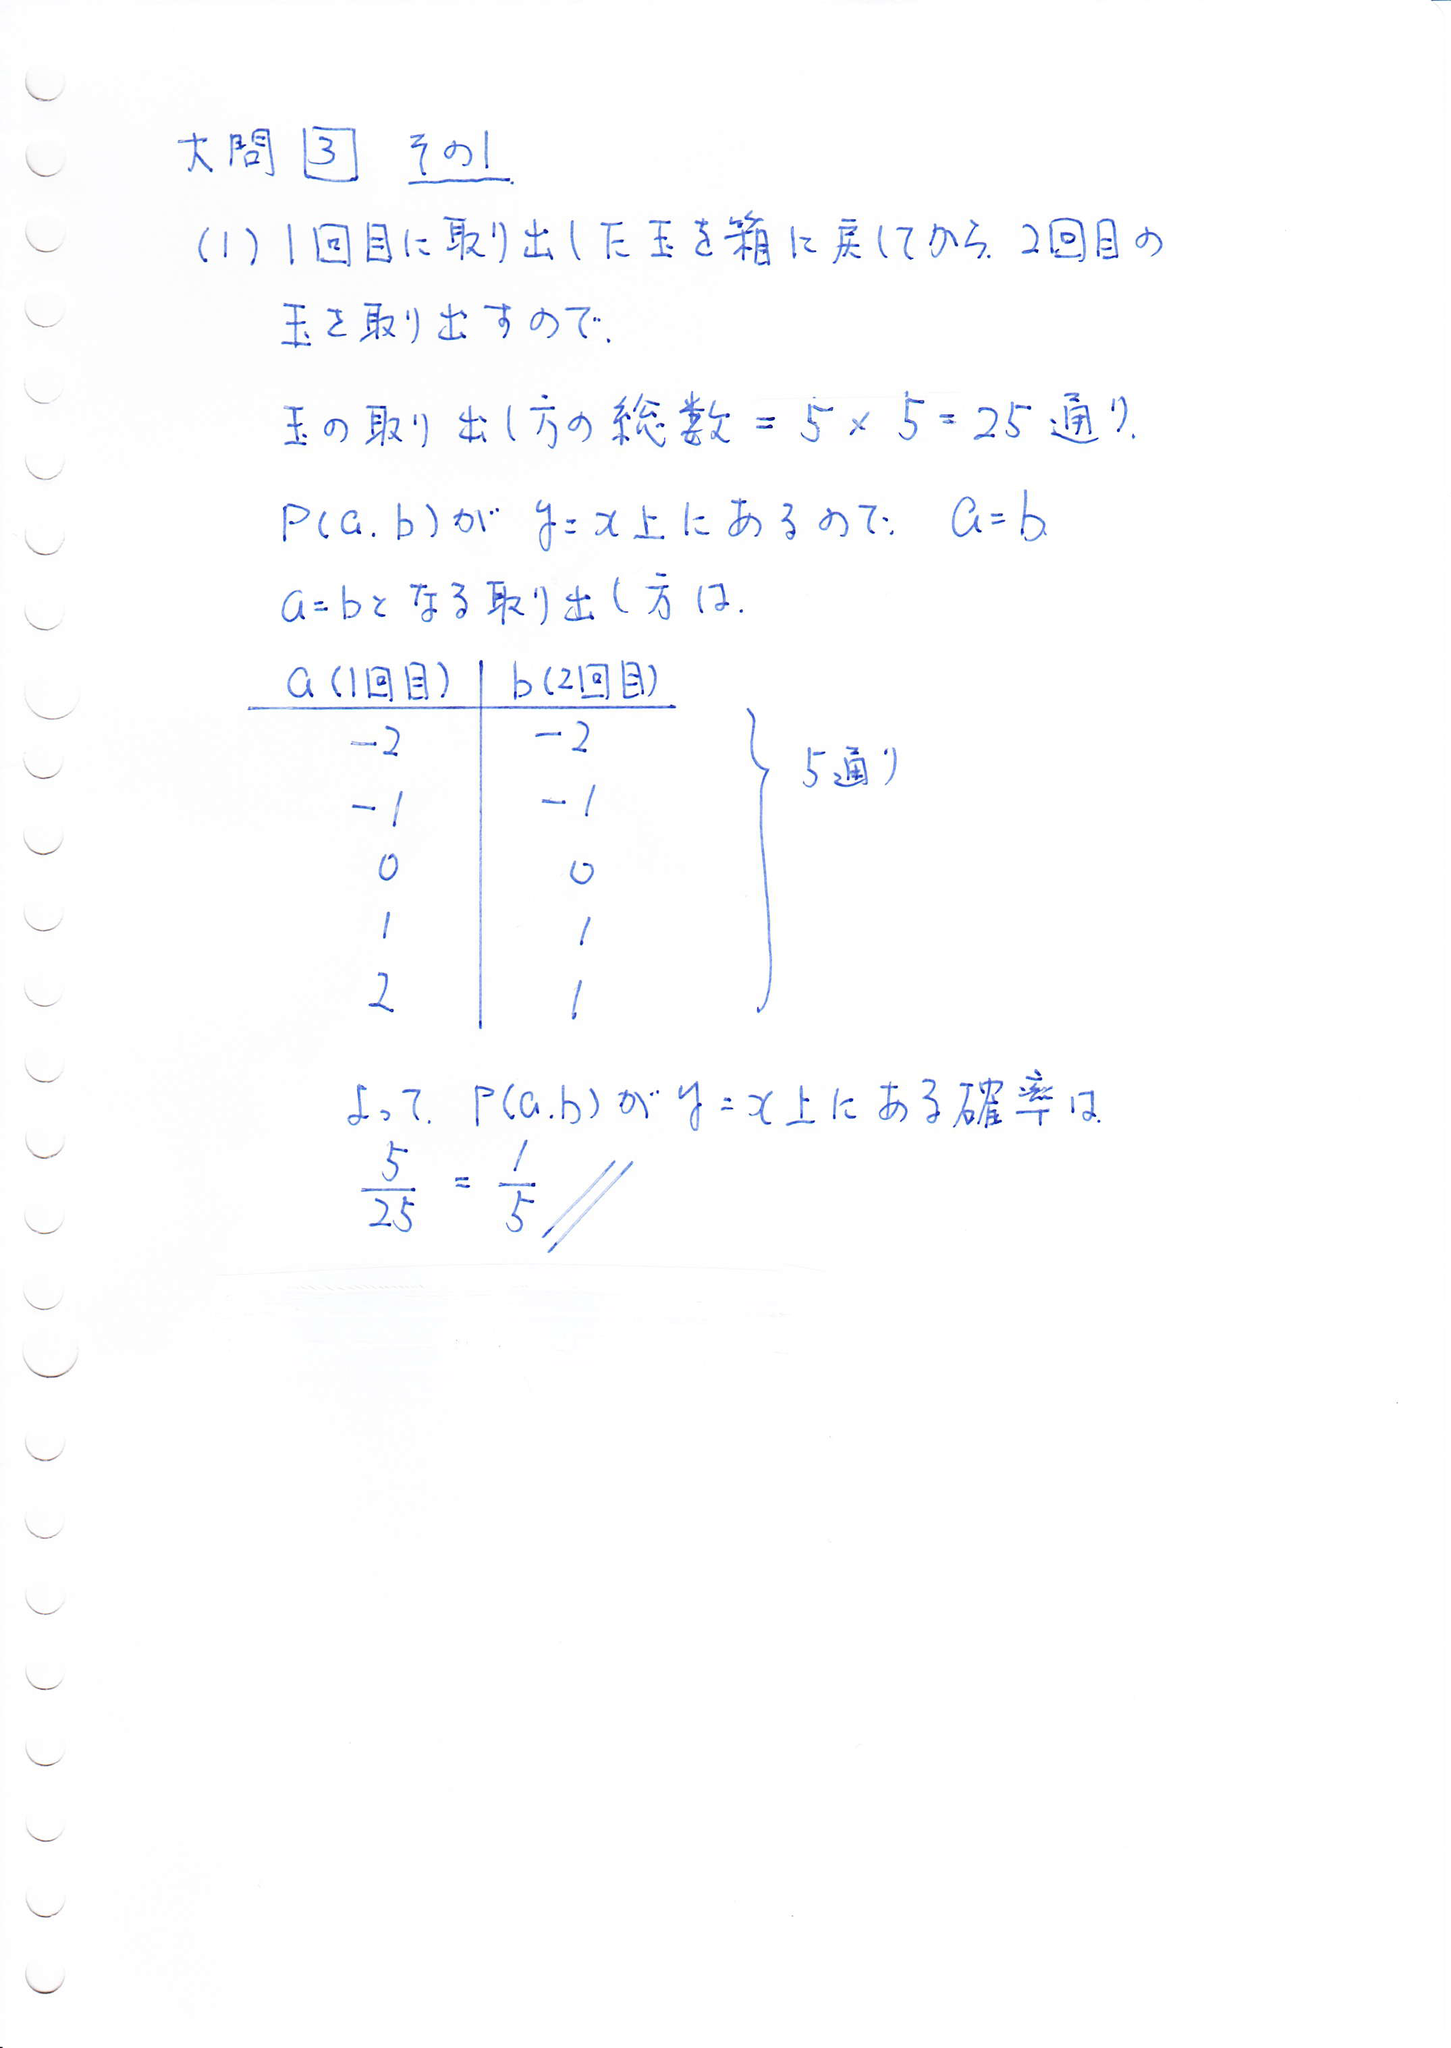 大問 3 その1
(1) 1回目に取り出した玉を箱に戻してから、2回目の
玉を取り出すので、
玉の取り出し方の総数 = 5 × 5 = 25 通り、
P(a.b)が y=x上にあるので、 a=b、
a=bとなる取り出し方は、
a (1回目) b (2回目)
-2 -2
5通り
-1 -1
0 0
1 1
2 1
よって、P(a.b)が y=x上にある確率は、
5/25 = 1/5